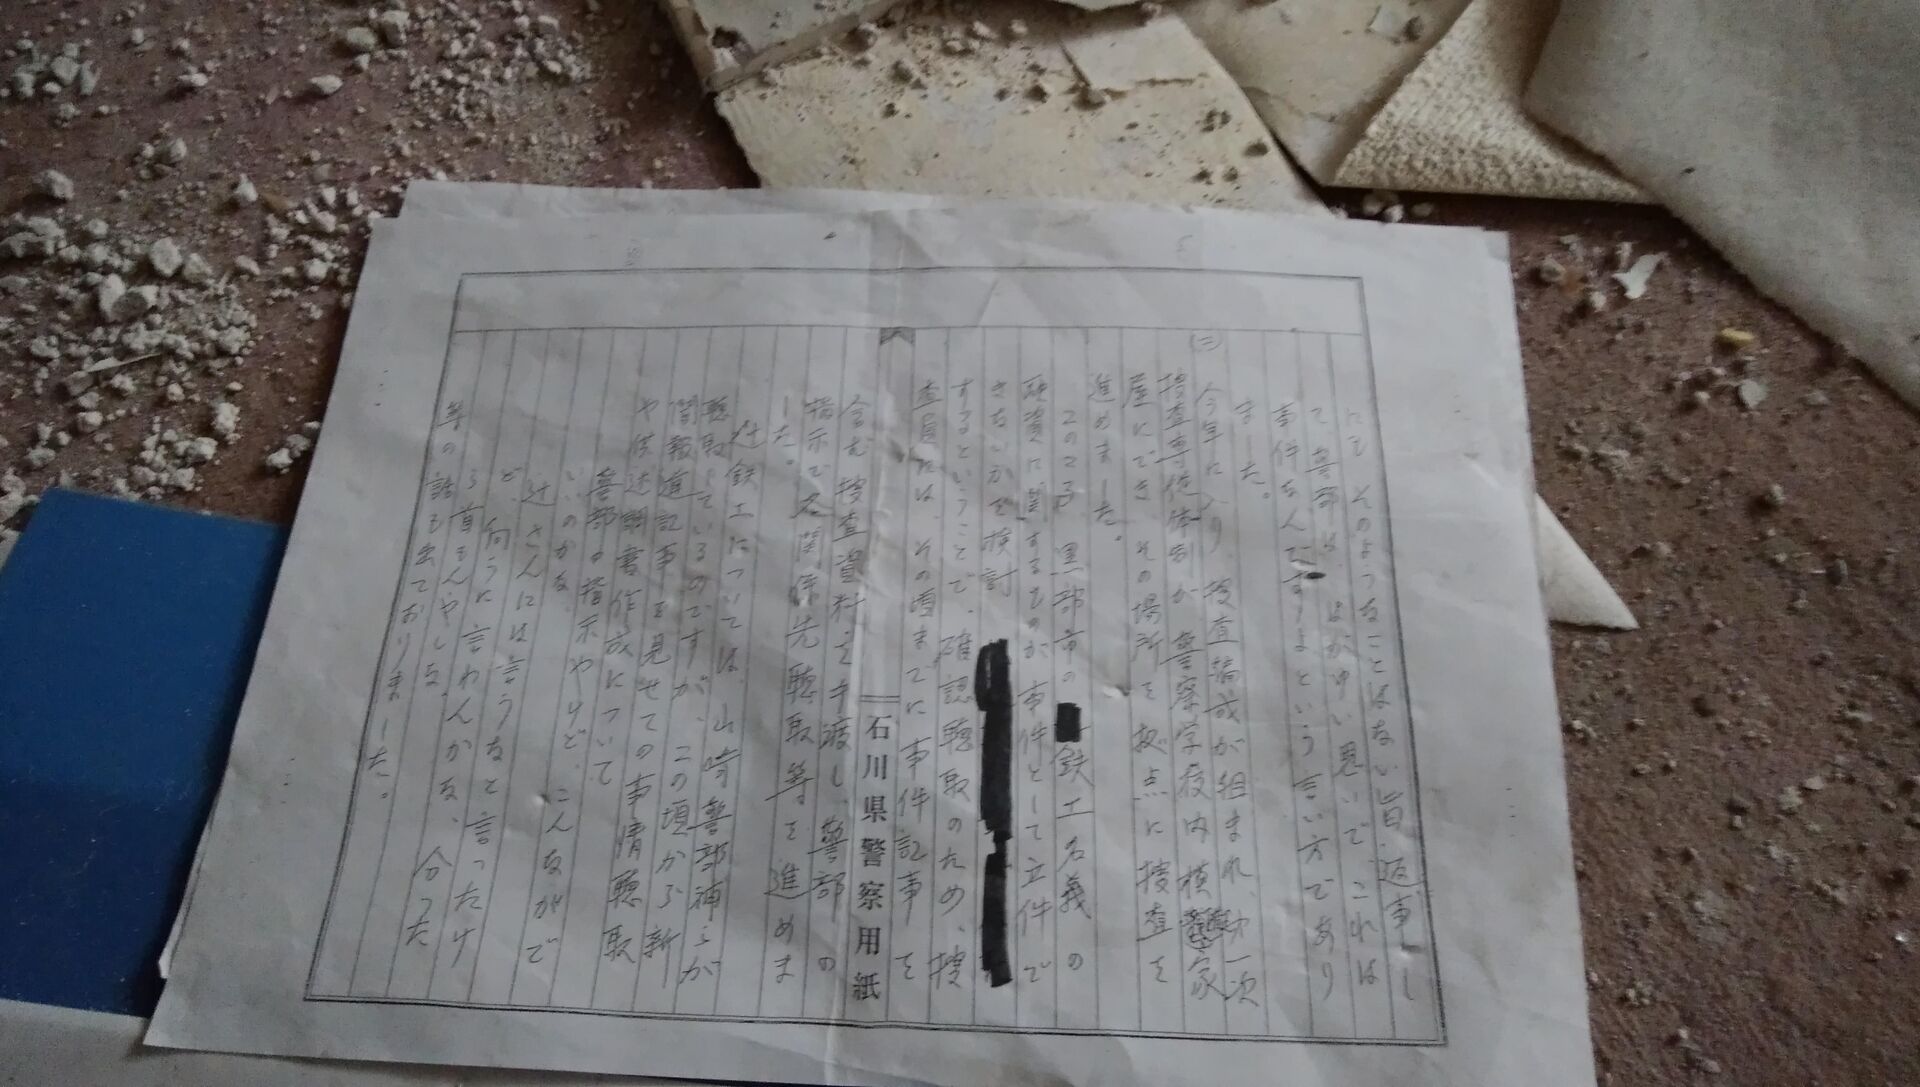 にも そのようなことはない旨 返事し
て警部は、はがゆい思いで、これは
事件なんですよという言い方であり
ました。
(三)
今年に入り、捜査編成が組まれ、次
捜査専従体制が 警察学校内模 家
屋にでき、その場所を拠点に捜査を
進めました。
このころ、黒部市の 鉄工名義の
融資に関するものが事件として立件で
きないかを検討
するということで、確認聴取のため、捜
査員には、その頃までに事件記事を
含む捜査資料を手渡し、警部の
指示で各関係先聴取等を進めま
した。
辻鉄工については、山崎警部補らが
聴取しているのですが、この頃から新
聞報道記事を見せての事情聴取
や供述調書作成について
警部の指示やけど、こんながで
いいのかな、
辻さんには言うなと言ったけ
ど、向うに言わんかな、分った
ら首もんやしな、
等の話も出ておりました。
石川県警察用紙